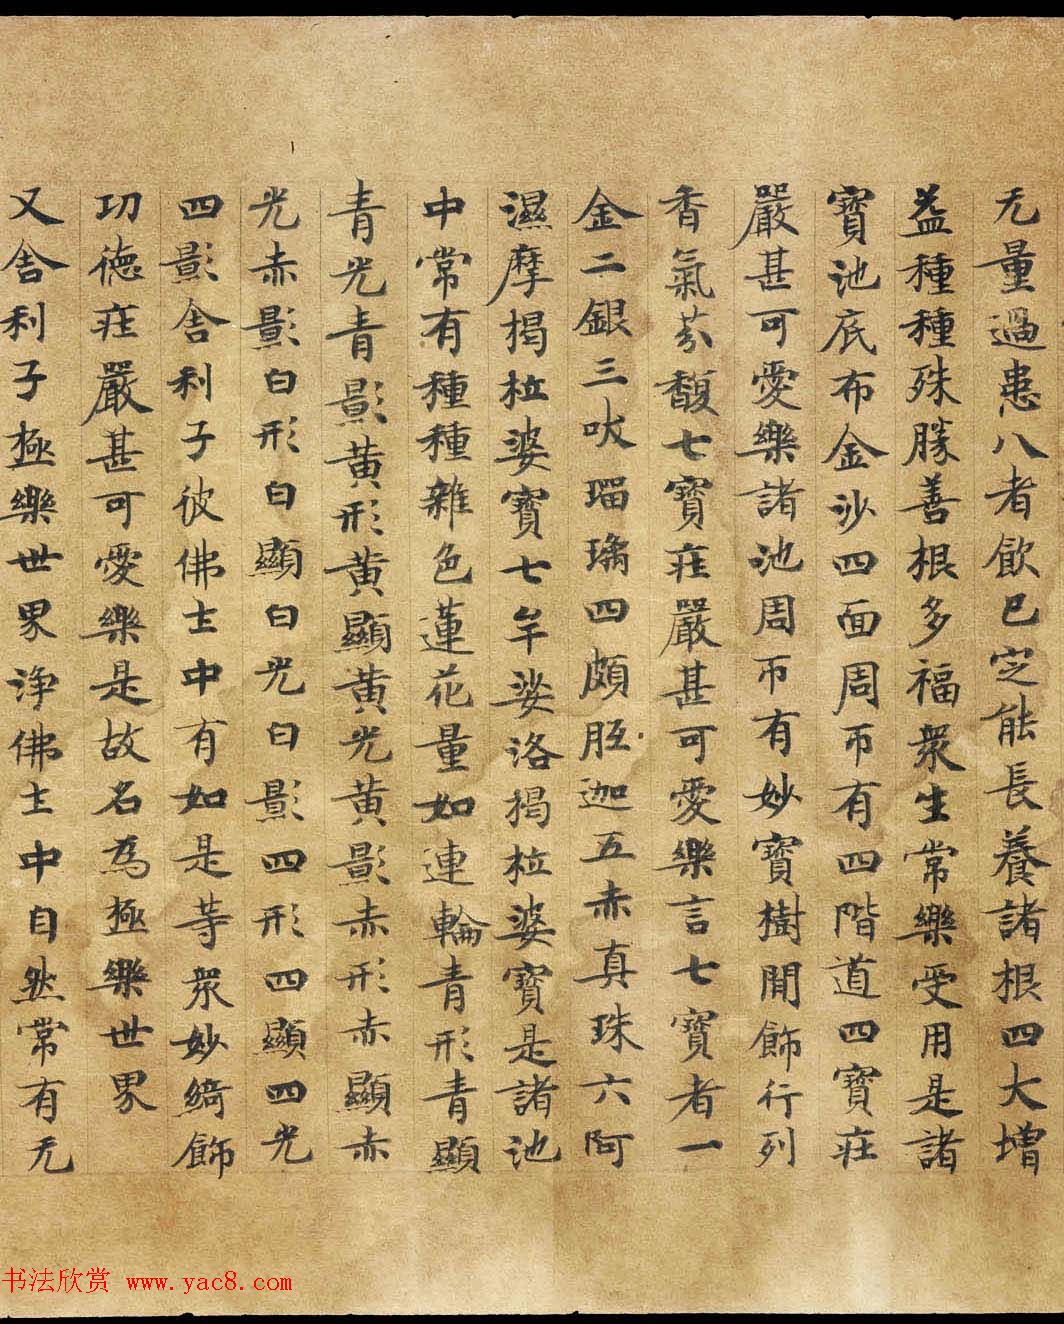 无量過患八者飲已定能長養諸根四大增
益種種殊勝善根多福衆生常樂受用是諸
寶池底布金沙四面周帀有四階道四寶莊
嚴甚可愛樂諸池周帀有妙寶樹間飾行列
香氣芬馥七寶莊嚴甚可愛樂言七寶者一
金二銀三吠瑠璃四頗胝迦五赤真珠六阿
濕摩揭拉婆寶七牟娑洛揭拉婆寶是諸池
中常有種種雜色蓮花量如連輪青形青顯
青光青影黃形黃顯黃光黃影赤形赤顯赤
光赤影白形白顯白光白影四形四顯四光
四影舍利子彼佛土中有如是等衆妙綺飾
功德莊嚴甚可愛樂是故名為極樂世界
又舍利子極樂世界淨佛土中自然常有无
书法欣赏 www.yac8.com